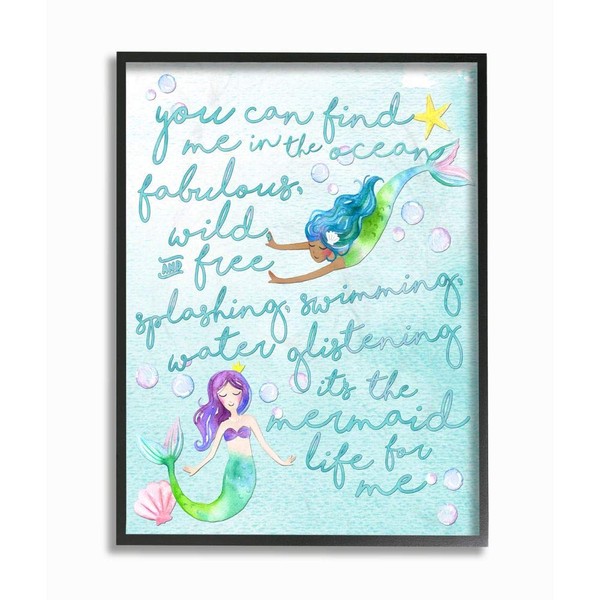 you can find
me in the ocean
fabulous,
wild
AND free
splashing, swimming,
water glistening
it's the
mermaid
life for
me